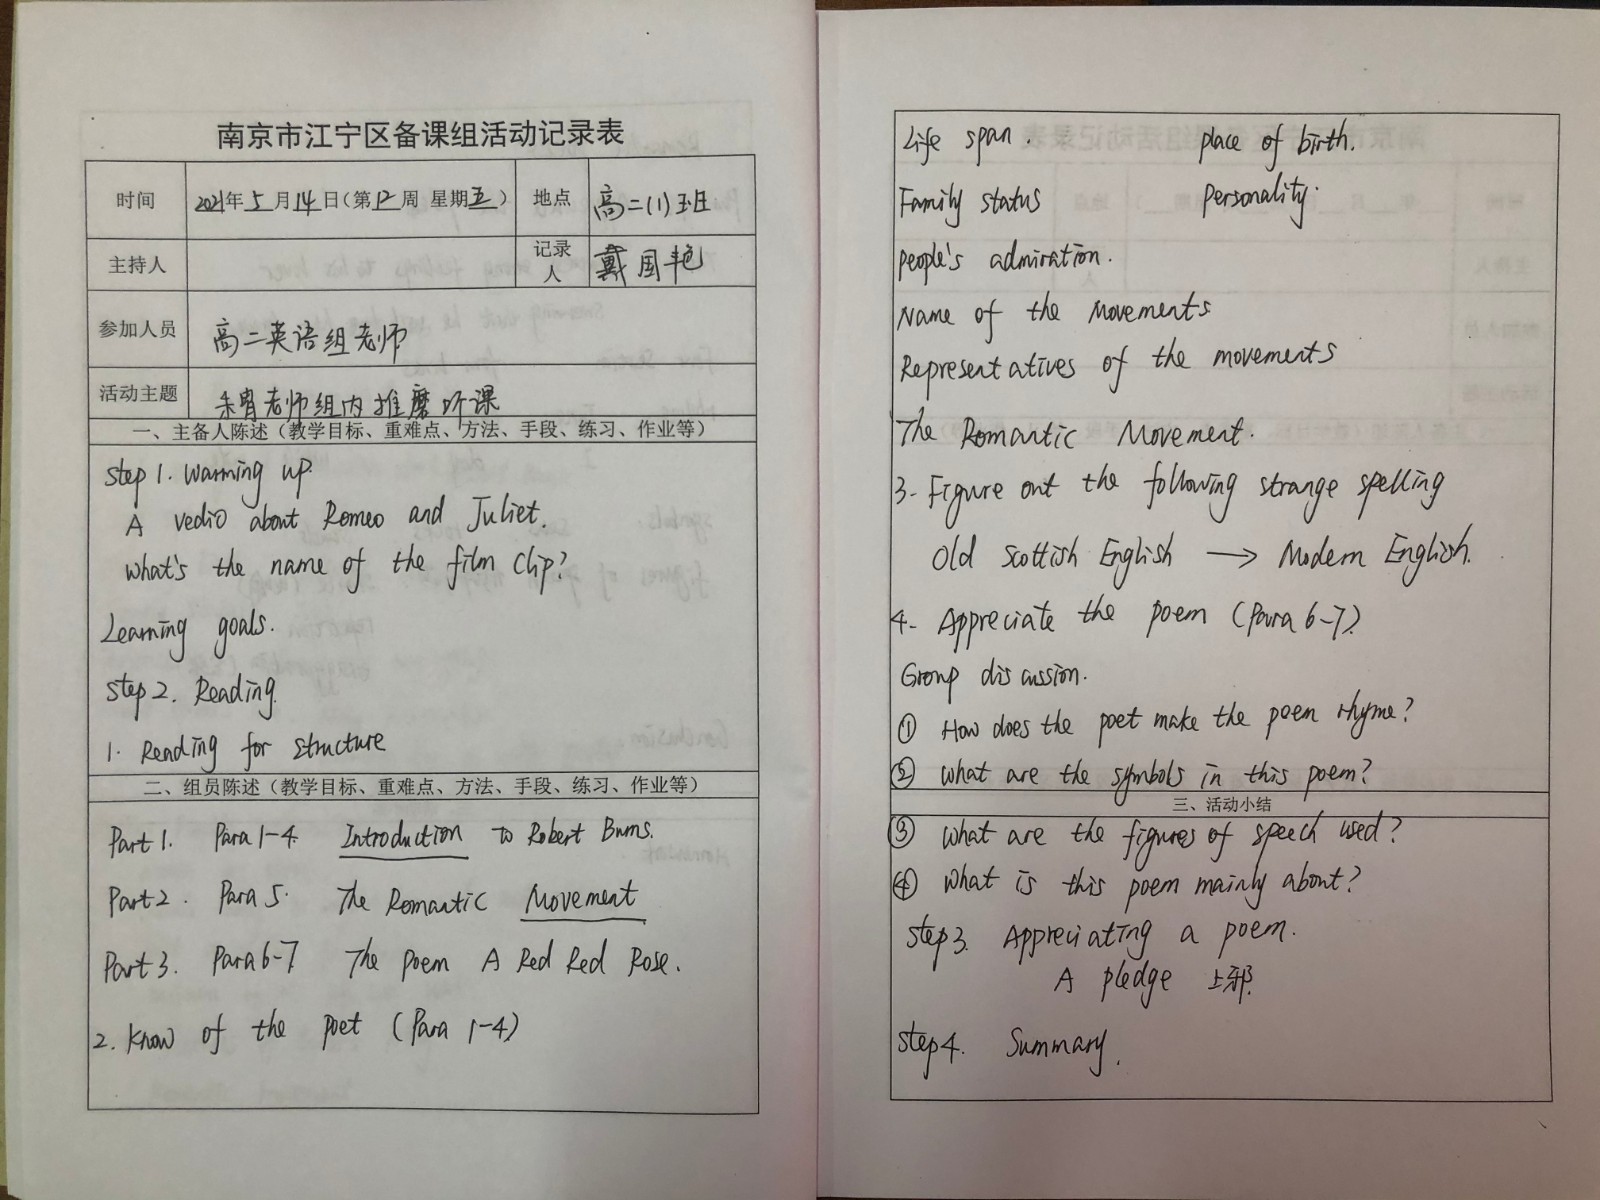 南京市江宁区备课组活动记录表
时间 2021年5月14日(第12周 星期五) 地点 高二(1)班
主持人 记录人 戴国艳
参加人员 高二英语组老师
活动主题 朱胄老师组内推磨听课
一、主备人陈述(教学目标、重难点、方法、手段、练习、作业等)
Step 1. Warming up.
A vedio about Romeo and Juliet.
What's the name of the film clip?
Learning goals.
Step 2. Reading.
1. Reading for structure
二、组员陈述(教学目标、重难点、方法、手段、练习、作业等)
Part 1. Para 1-4 Introduction to Robert Burns.
Part 2. Para 5. The Romantic Movement
Part 3. Para 6-7 The Poem A Red Red Rose.
2. Know of the poet (Para 1-4)
Life span. place of birth.
Family status Personality.
people's admiration.
Name of the Movements
Representatives of the movements
The Romantic Movement.
3. Figure out the following strange spelling
Old Scottish English → Modern English.
4. Appreciate the poem (Para 6-7)
Group discussion.
① How does the poet make the poem rhyme?
② What are the symbols in this poem?
三、活动小结
③ What are the figures of speech used?
④ What is this poem mainly about?
Step 3. Appreciating a poem.
A pledge 上邪.
Step 4. Summary.